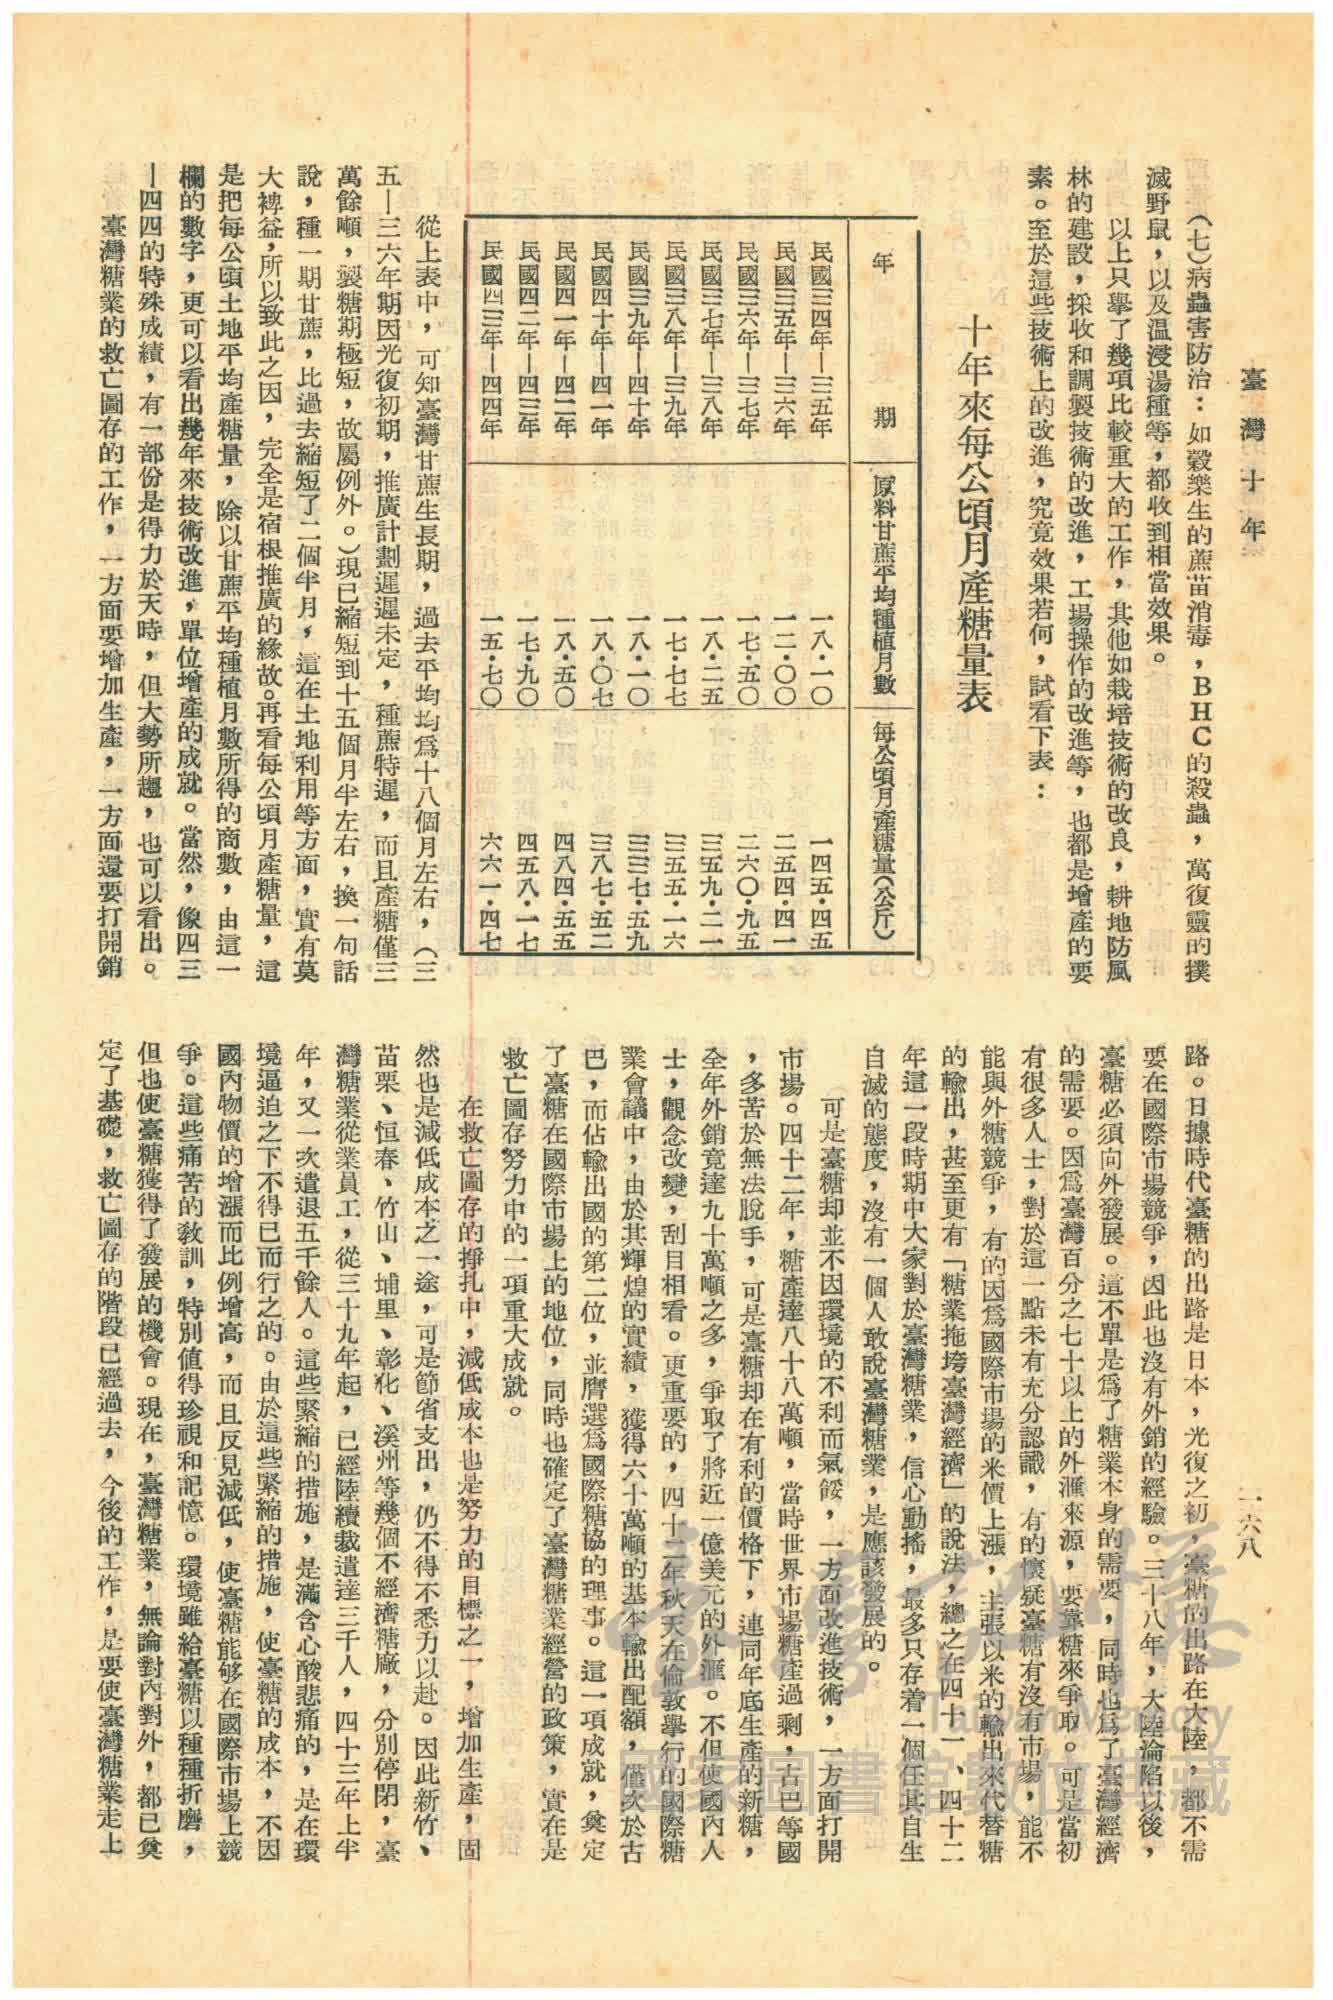 臺灣十年
一六八
(七)病蟲害防治：如穀樂生的蔗苗消毒，BHC的殺蟲，萬復靈的撲
滅野鼠，以及温浸湯種等，都收到相當效果。
以上只擧了幾項比較重大的工作，其他如栽培技術的改良，耕地防風
林的建設，採收和調製技術的改進，工場操作的改進等，也都是增產的要
素。至於這些技術上的改進，究竟效果若何，試看下表：
十年來每公頃月產糖量表
年期　原料甘蔗平均種植月數　每公頃月產糖量(公斤)
民國三四年—三五年　一八・一〇　一四五・四五
民國三五年—三六年　一二・〇〇　二五四・四一
民國三六年—三七年　一七・五〇　二六〇・九五
民國三七年—三八年　一八・二五　三五九・二一
民國三八年—三九年　一七・七七　三五五・一六
民國三九年—四十年　一八・一〇　三三七・五九
民國四十年—四一年　一八・〇七　三八七・五二
民國四一年—四二年　一八・五〇　四八四・五五
民國四二年—四三年　一七・九〇　四五八・一七
民國四三年—四四年　一五・七〇　六六一・四七
從上表中，可知臺灣甘蔗生長期，過去平均均爲十八個月左右，(三
五—三六年期因光復初期，推廣計劃遲遲未定，種蔗特遲，而且產糖僅三
萬餘噸，製糖期極短，故屬例外。)現已縮短到十五個月半左右，換一句話
說，種一期甘蔗，比過去縮短了二個半月，這在土地利用等方面，實有莫
大裨益，所以致此之因，完全是宿根推廣的緣故。再看每公頃月產糖量，這
是把每公頃土地平均產糖量，除以甘蔗平均種植月數所得的商數，由這一
欄的數字，更可以看出幾年來技術改進，單位增產的成就。當然，像四三
—四四的特殊成績，有一部份是得力於天時，但大勢所趨，也可以看出。
臺灣糖業的救亡圖存的工作，一方面要增加生產，一方面還要打開銷
路。日據時代臺糖的出路是日本，光復之初，臺糖的出路在大陸，都不需
要在國際市場競爭，因此也沒有外銷的經驗。三十八年，大陸淪陷以後，
臺糖必須向外發展。這不單是爲了糖業本身的需要，同時也爲了臺灣經濟
的需要。因爲臺灣百分之七十以上的外滙來源，要靠糖來爭取。可是當初
有很多人士，對於這一點未有充分認識，有的懷疑臺糖有沒有市場，能不
能與外糖競爭，有的因爲國際市場的米價上漲，主張以米的輸出來代替糖
的輸出，甚至更有「糖業拖垮臺灣經濟」的說法，總之在四十一、四十二
年這一段時期中大家對於臺灣糖業，信心動搖，最多只存着一個任其自生
自滅的態度，沒有一個人敢說臺灣糖業，是應該發展的。
可是臺糖却並不因環境的不利而氣餒，一方面改進技術，一方面打開
市場。四十二年，糖產達八十八萬噸，當時世界市場糖產過剩，古巴等國
，多苦於無法脫手，可是臺糖却在有利的價格下，連同年底生產的新糖，
全年外銷竟達九十萬噸之多，爭取了將近一億美元的外滙。不但使國內人
士，觀念改變，刮目相看。更重要的，四十二年秋天在倫敦擧行的國際糖
業會議中，由於其輝煌的實績，獲得六十萬噸的基本輸出配額，僅次於古
巴，而佔輸出國的第二位，並膺選爲國際糖協的理事。這一項成就，奠定
了臺糖在國際市場上的地位，同時也確定了臺灣糖業經營的政策，實在是
救亡圖存努力中的一項重大成就。
在救亡圖存的掙扎中，減低成本也是努力的目標之一，增加生產，固
然也是減低成本之一途，可是節省支出，仍不得不悉力以赴。因此新竹、
苗栗、恒春、竹山、埔里、彰化、溪州等幾個不經濟糖廠，分別停閉，臺
灣糖業從業員工，從三十九年起，已經陸續裁遣達三千人，四十三年上半
年，又一次遣退五千餘人。這些緊縮的措施，是滿含心酸悲痛的，是在環
境逼迫之下不得已而行之的。由於這些緊縮的措施，使臺糖的成本，不因
國內物價的增漲而比例增高，而且反見減低，使臺糖能够在國際市場上競
爭。這些痛苦的敎訓，特別値得珍視和記憶。環境雖給臺糖以種種折磨，
但也使臺糖獲得了發展的機會。現在，臺灣糖業，無論對內對外，都已奠
定了基礎，救亡圖存的階段已經過去，今後的工作，是要使臺灣糖業走上
臺灣記憶
Taiwan Memory
國家圖書館數位典藏